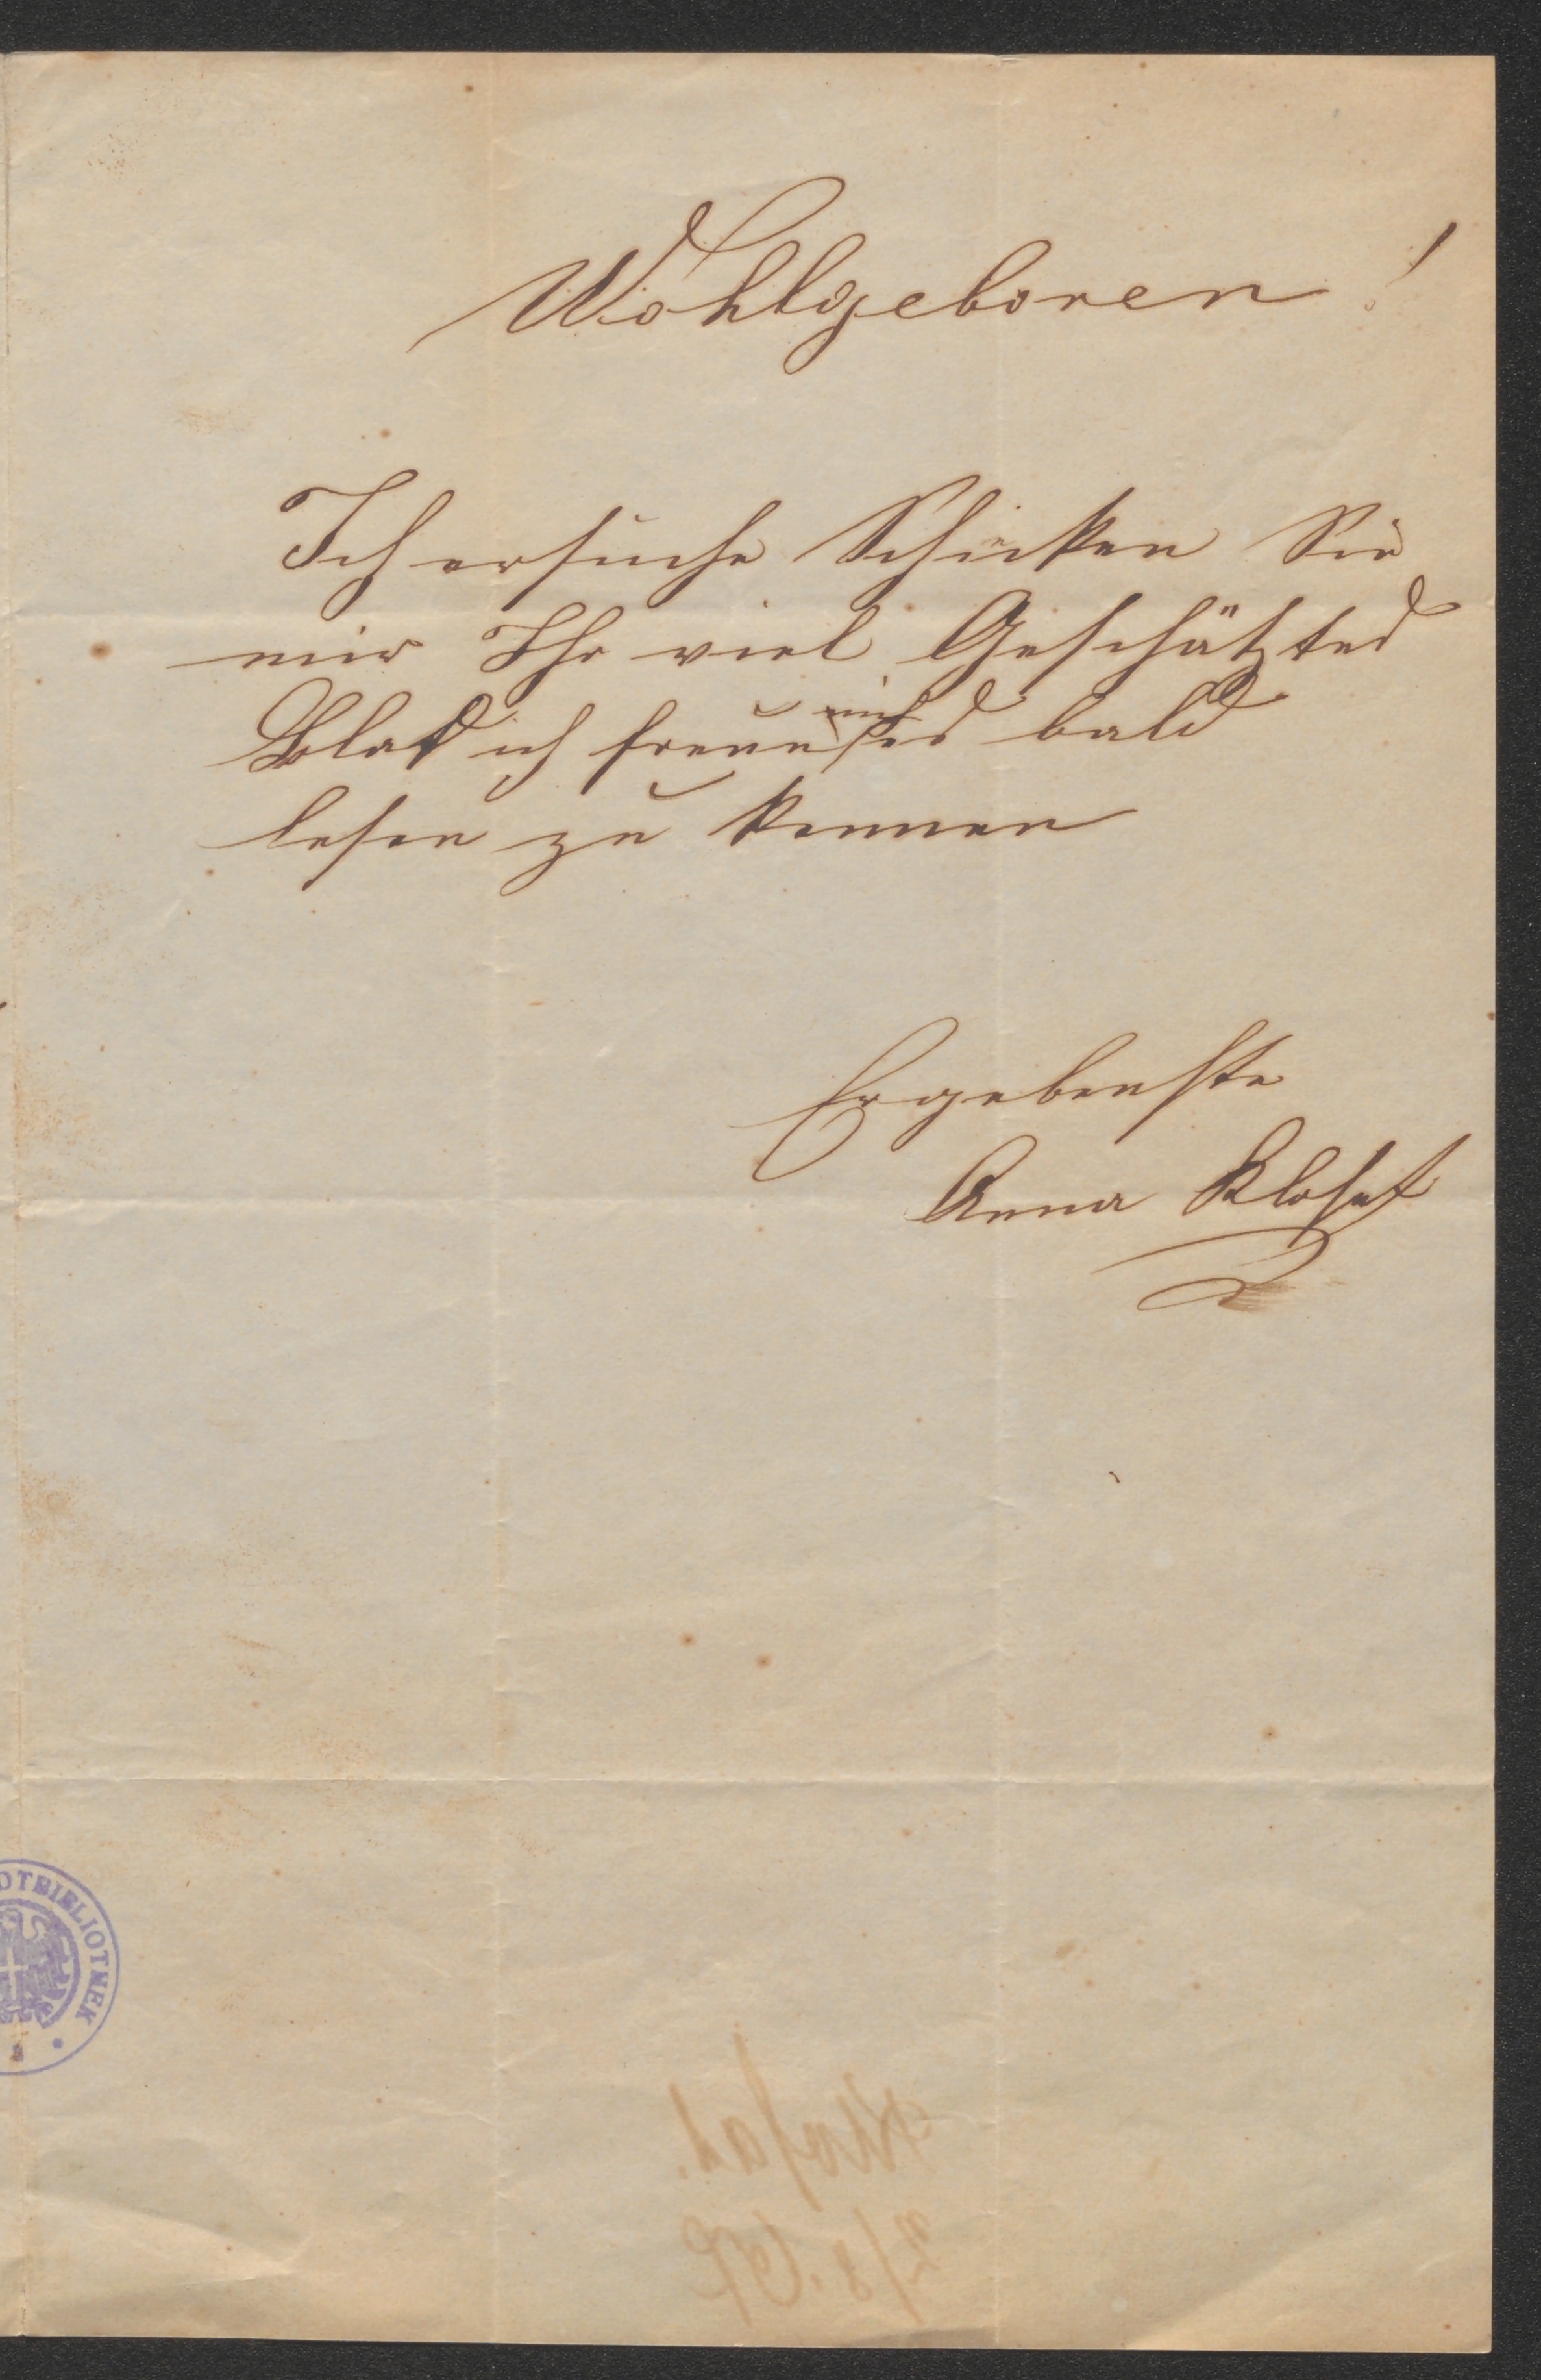 Wohlgeboren!
Ich ersuche Schicken Sie
mir Ihr viel Geschätztes
Blad ich freue mich es bald
lesen zu kennen
Ergebenste
Anna Klosef
DTBIBLIOTHEK